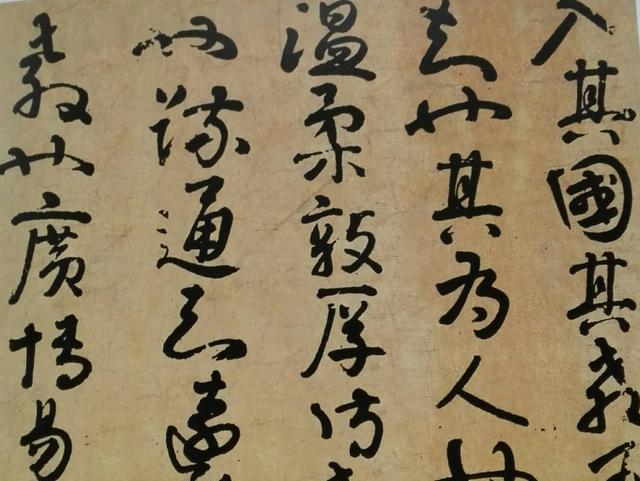 入其國其教可
知也其為人也
温柔敦厚詩
也疏通知遠
教也廣博易